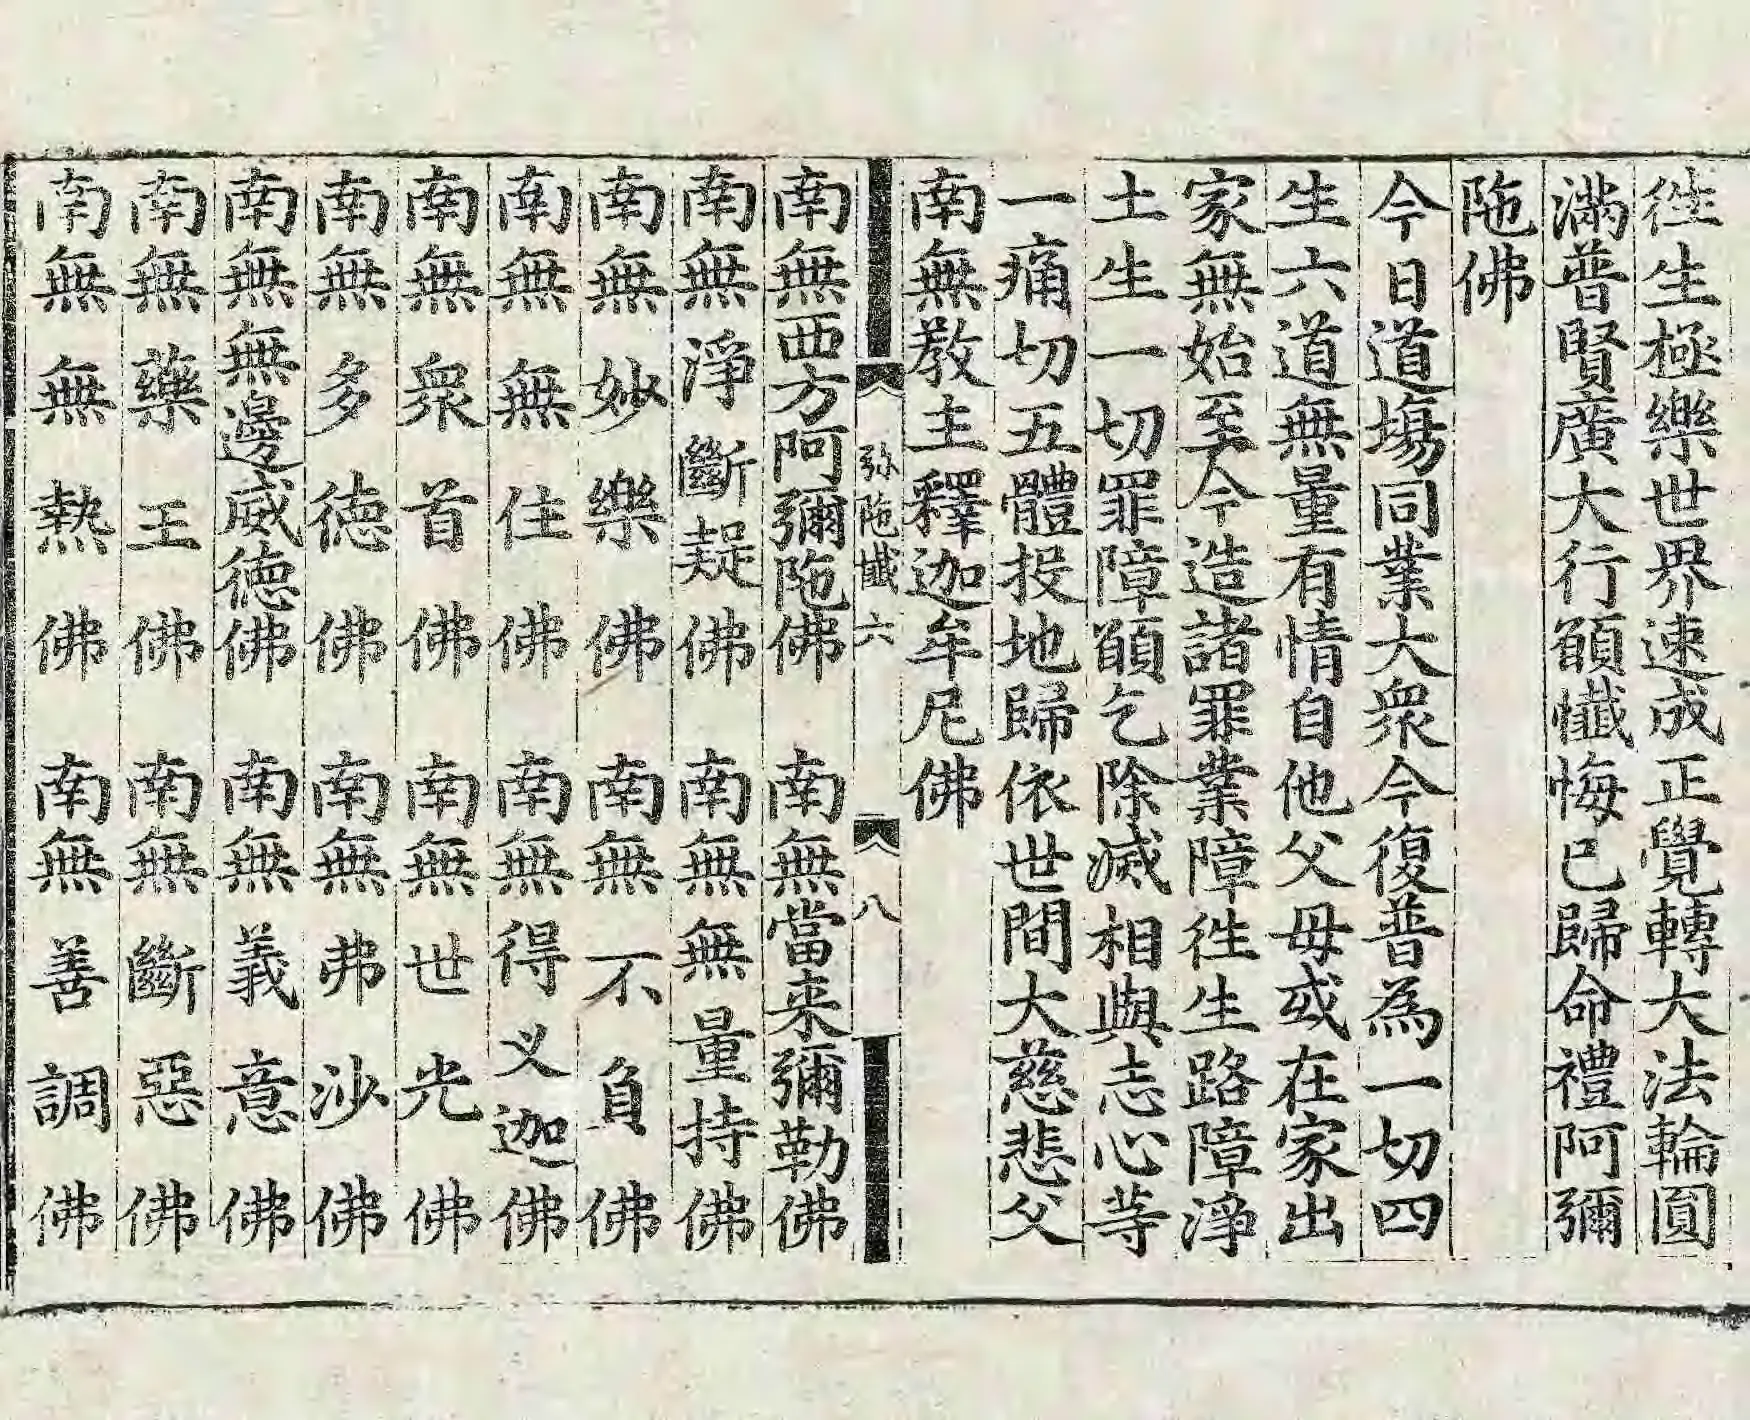 徃生極樂世界速成正覺轉大法輪圎
滿普賢廣大行願懺悔已歸命禮阿彌
陁佛
今日道塲同業大衆今復普為一切四
生六道無量有情自他父母或在家出
家無始至今造諸罪業障徃生路障淨
土生一一切罪障願乞除滅相與志心等
一痛切五體投地歸依世間大慈悲父
南無教主釋迦牟尼佛
弥陁懺六 八
南無西方阿彌陁佛 南無當来彌勒佛
南無淨斷疑佛 南無無量持佛
南無妙樂佛 南無不負佛
南無無住佛 南無得义迦佛
南無衆首佛 南無世光佛
南無多德佛 南無弗沙佛
南無無邊威德佛 南無義意佛
南無藥王佛 南無斷惡佛
南無無熱佛 南無善調佛